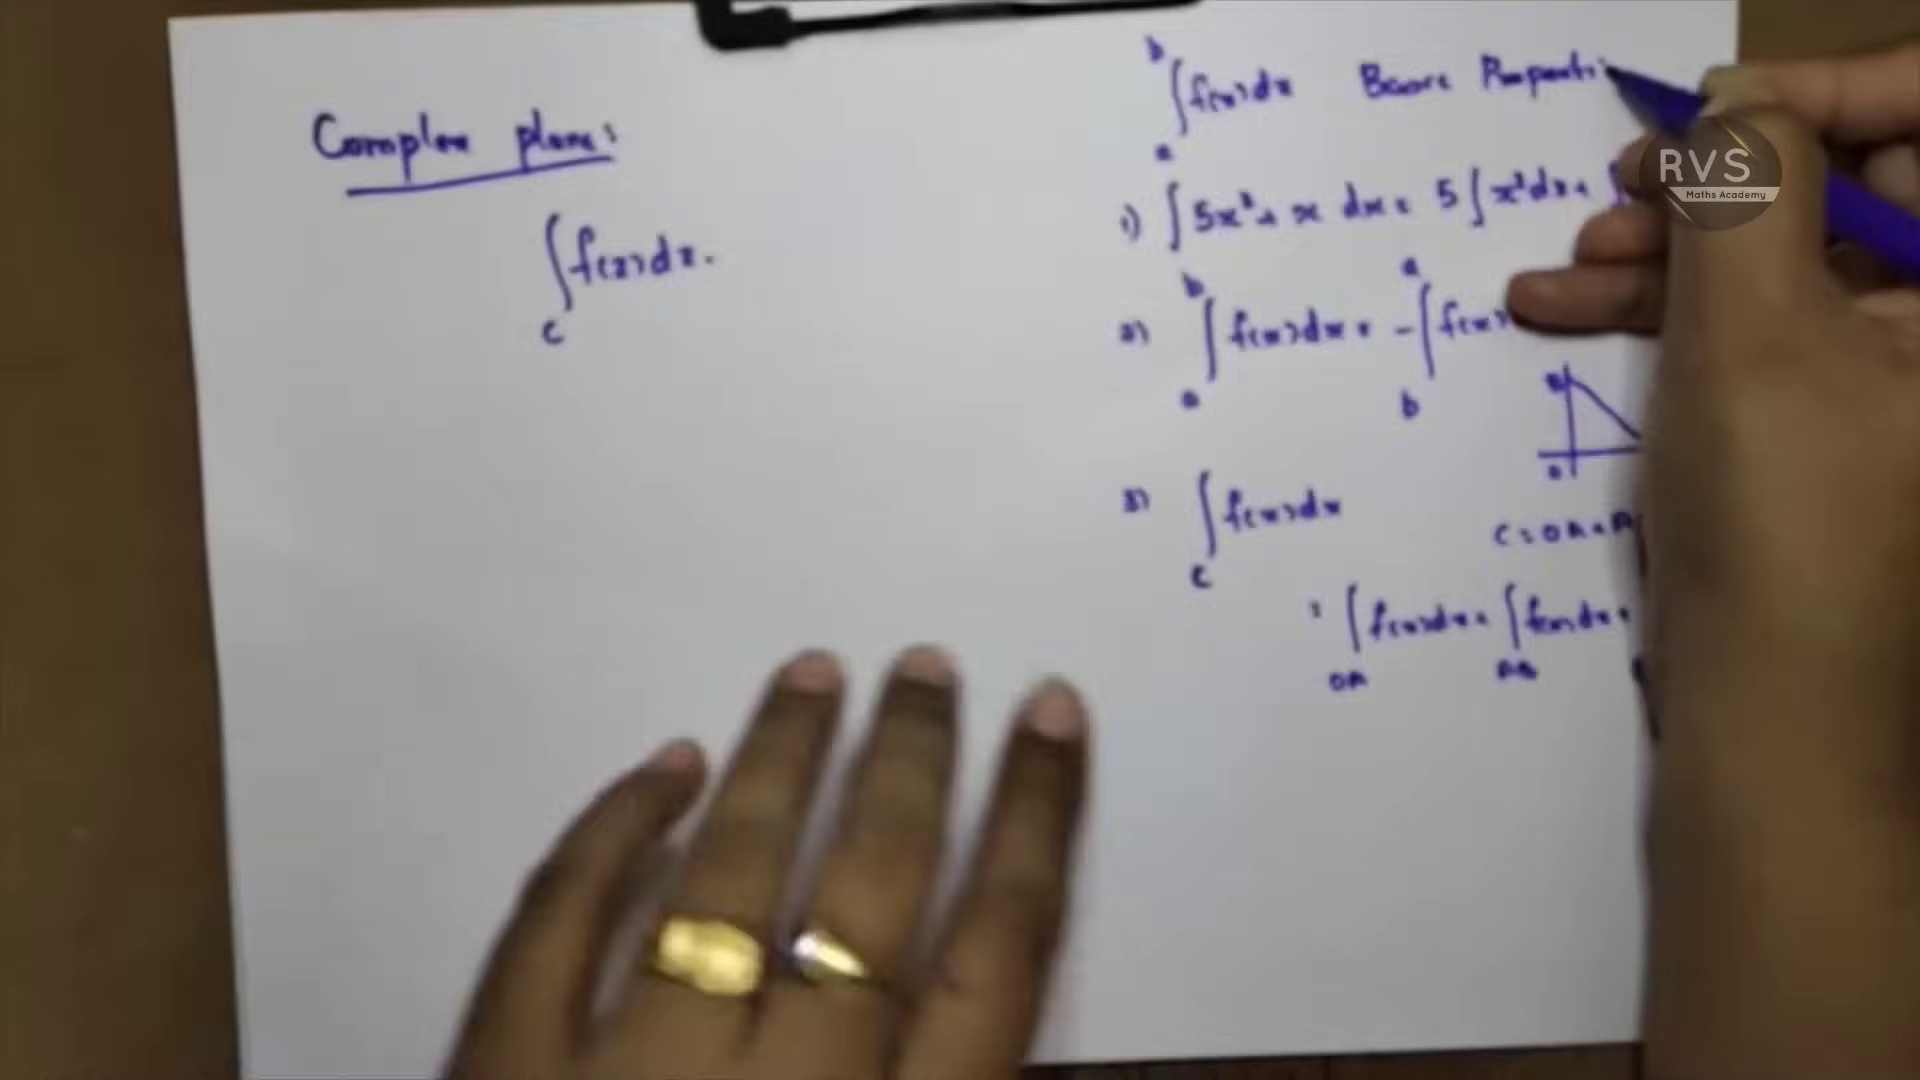 Complex plane:
∫_C f(z)dz.
∫_a^b f(x)dx Basic
1) ∫ 5x² + x dx = 5 ∫ x² dx +
2) ∫_a^b f(x)dx = - ∫_b^a f(x)
B
O
3) ∫_C f(x)dx
C = OA +
= ∫_OA f(x)dx + ∫_AB f(x)dx +
RVS
Maths Academy